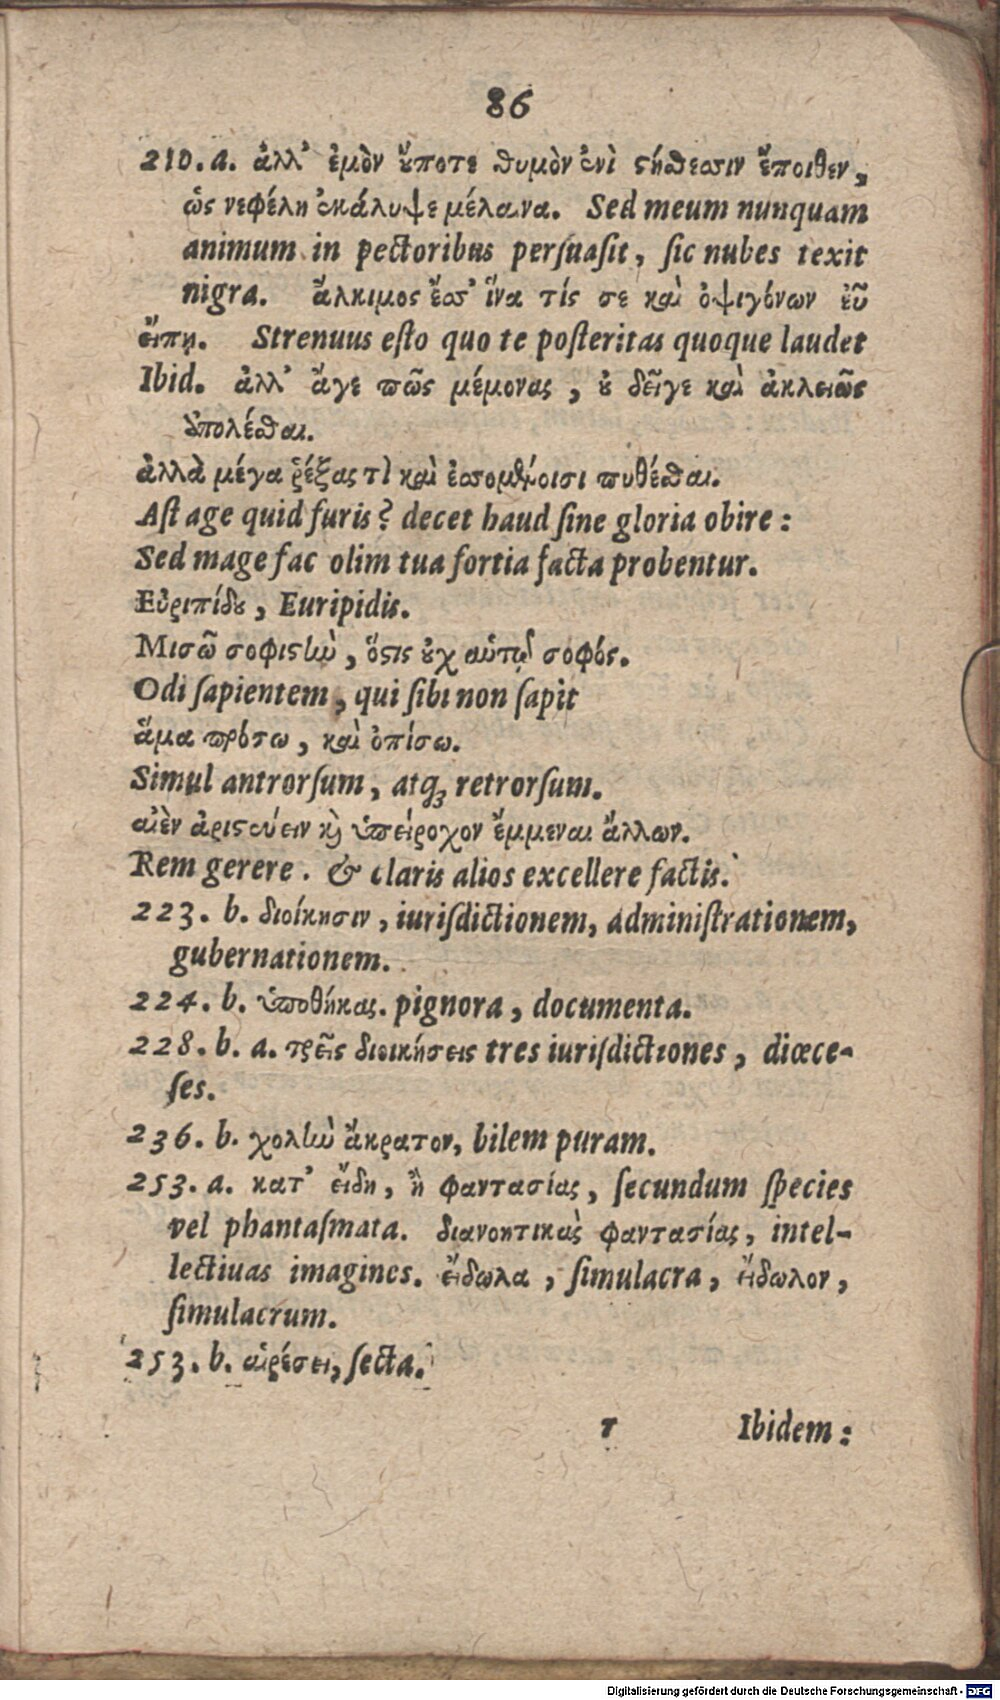 86
210. a. ἀλλ' ἐμὸν ȣ̓́ποτε θυμὸν ἐνὶ ϛήθεσσιν ἔποιθεν,
ὡς νεφέλη ἐκάλυψε μέλαινα. Sed meum nunquam
animum in pectoribus perſuaſit, ſic nubes texit
nigra. ἄλκιμος ἔσσ' ἵνα τίς σε καὶ ὀψιγόνων ἐῦ
εἴπῃ. Strenuus eſto quo te poſteritas quoque laudet
Ibid. ἀλλ' ἄγε πῶς μέμονας, ȣ δεῖγε καὶ ἀκλειῶς
ὑπολέσθαι.
ἀλλὰ μέγα ῥέξας τὶ καὶ ἐσσομένοισι πυθέσθαι.
Aſt age quid furis? decet haud ſine gloria obire:
Sed mage fac olim tua fortia facta probentur.
Εὐριπίδȣ, Euripidis.
Μισῶ σοφιϛὴν, ὅϛις ȣχ αὑτῷ σοφός.
Odi ſapientem, qui ſibi non ſapit
ἅμα πρόσσω, καὶ ὀπίσω.
Simul antrorſum, atq; retrorſum.
αἰὲν ἀριϛεύειν ϗ ὑπείροχον ἔμμεναι ἄλλων.
Rem gerere. & claris alios excellere factis.
223. b. διοίκησιν, iuriſdictionem, adminiſtrationem,
gubernationem.
224. b. ὑποθήκας. pignora, documenta.
228. b. a. τρεῖς διοικήσεις tres iuriſdictiones, diœce-
ſes.
236. b. χολὴν ἄκρατον, bilem puram.
253. a. κατ' εἴδη, ἢ φαντασίας, ſecundum ſpecies
vel phantaſmata. διανοητικὰς φαντασίας, intel-
lectiuas imagines. εἴδωλα, ſimulacra, εἴδωλον,
ſimulacrum.
253. b. αἱρέσει, ſecta.
r Ibidem:
Digitalisierung gefördert durch die Deutsche Forschungsgemeinschaft - DFG